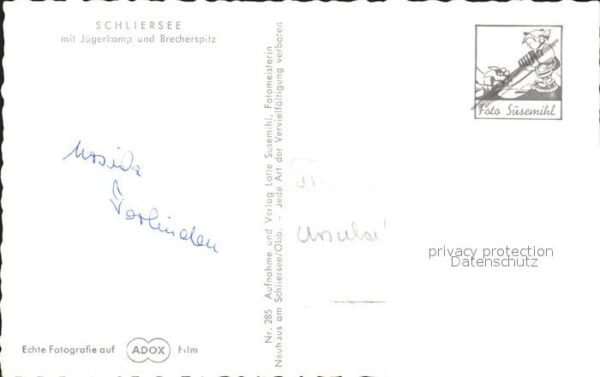 SCHLIERSEE
mit Jägerkamp und Brecherspitz
Foto Susemihl
Nr. 285 Aufnahme und Verlag Lotte Susemihl, Fotomeisterin
Neuhaus am Schliersee/Obb. – Jede Art der Vervielfältigung verboten
Ursula
privacy protection
Datenschutz
Echte Fotografie auf ADOX Film